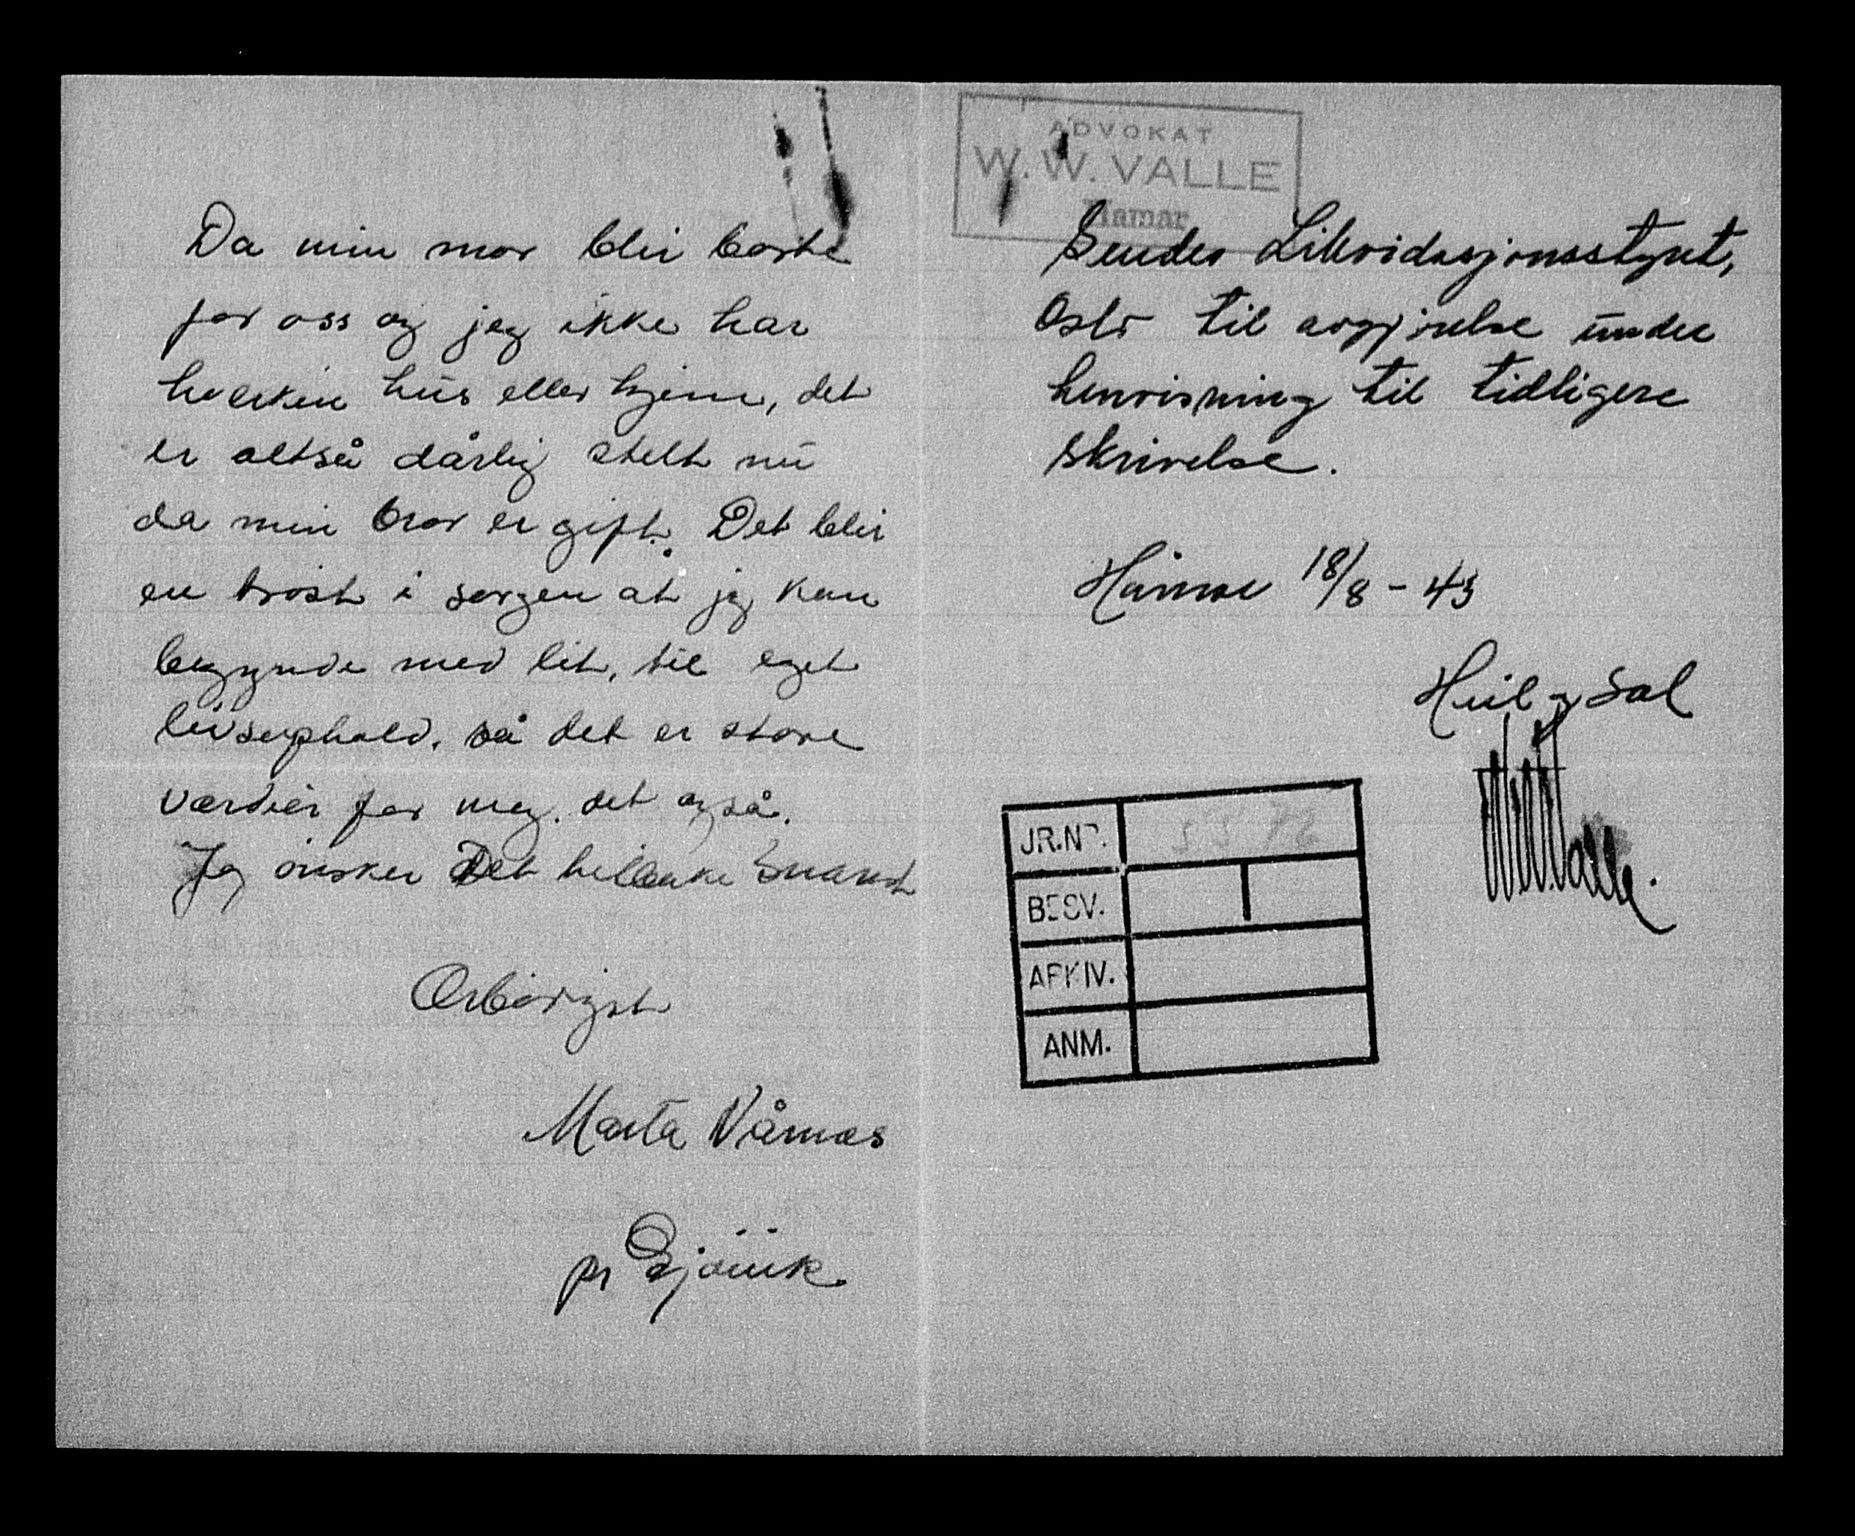 Da min mor blir borte
for oss og jeg ikke har
hverken hus eller hjem, det
er altså dårlig stelt nu
da min bror er gift. Det blir
en trøst i sorgen at jeg kan
begynde med lit, til eget
livsophold. så det er store
værdier for meg. det også.
Jeg ønsker Det snarest
Ærbødigst
Marta Vårnæs
pr Gjøvik
ADVOKAT
W. W. VALLE
Hamar
Sendes Likvidasjonsstyret,
Oslo til avgjørelse under
henvisning til tidligere
skrivelse.
Hamar 18/8 - 43
Heil og Sæl
W. W. Valle.
JR.NR.
BESV.
ARKIV.
ANM.